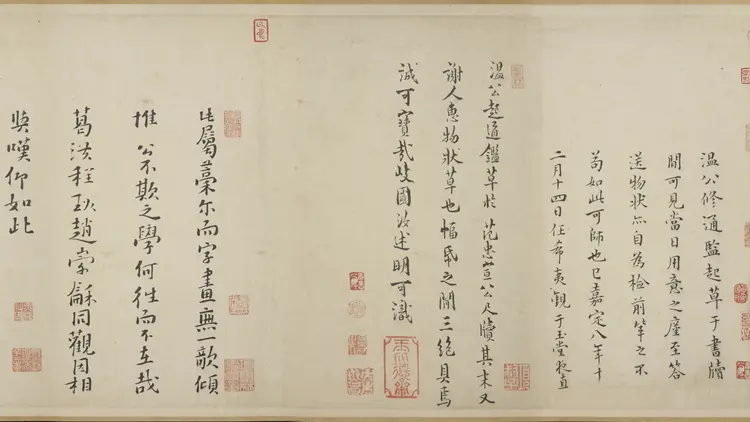 温公修通监起草于書牘
間可見當日用意之廑至答
送物狀亦自為檢前輩之不
苟如此可師也已嘉定八年十
二月十四日任希夷觀于玉堂夜直
温公起通鑑草於范忠宣公尺牘其末又
謝人惠物狀草也幅紙之間三絶具焉
誠可寶哉歧國汝述明可識
此屬藁尔而字畫無一欹傾
惟公不欺之學何往而不在哉
葛洪程珌趙崇龢同觀因相
與嘆仰如此